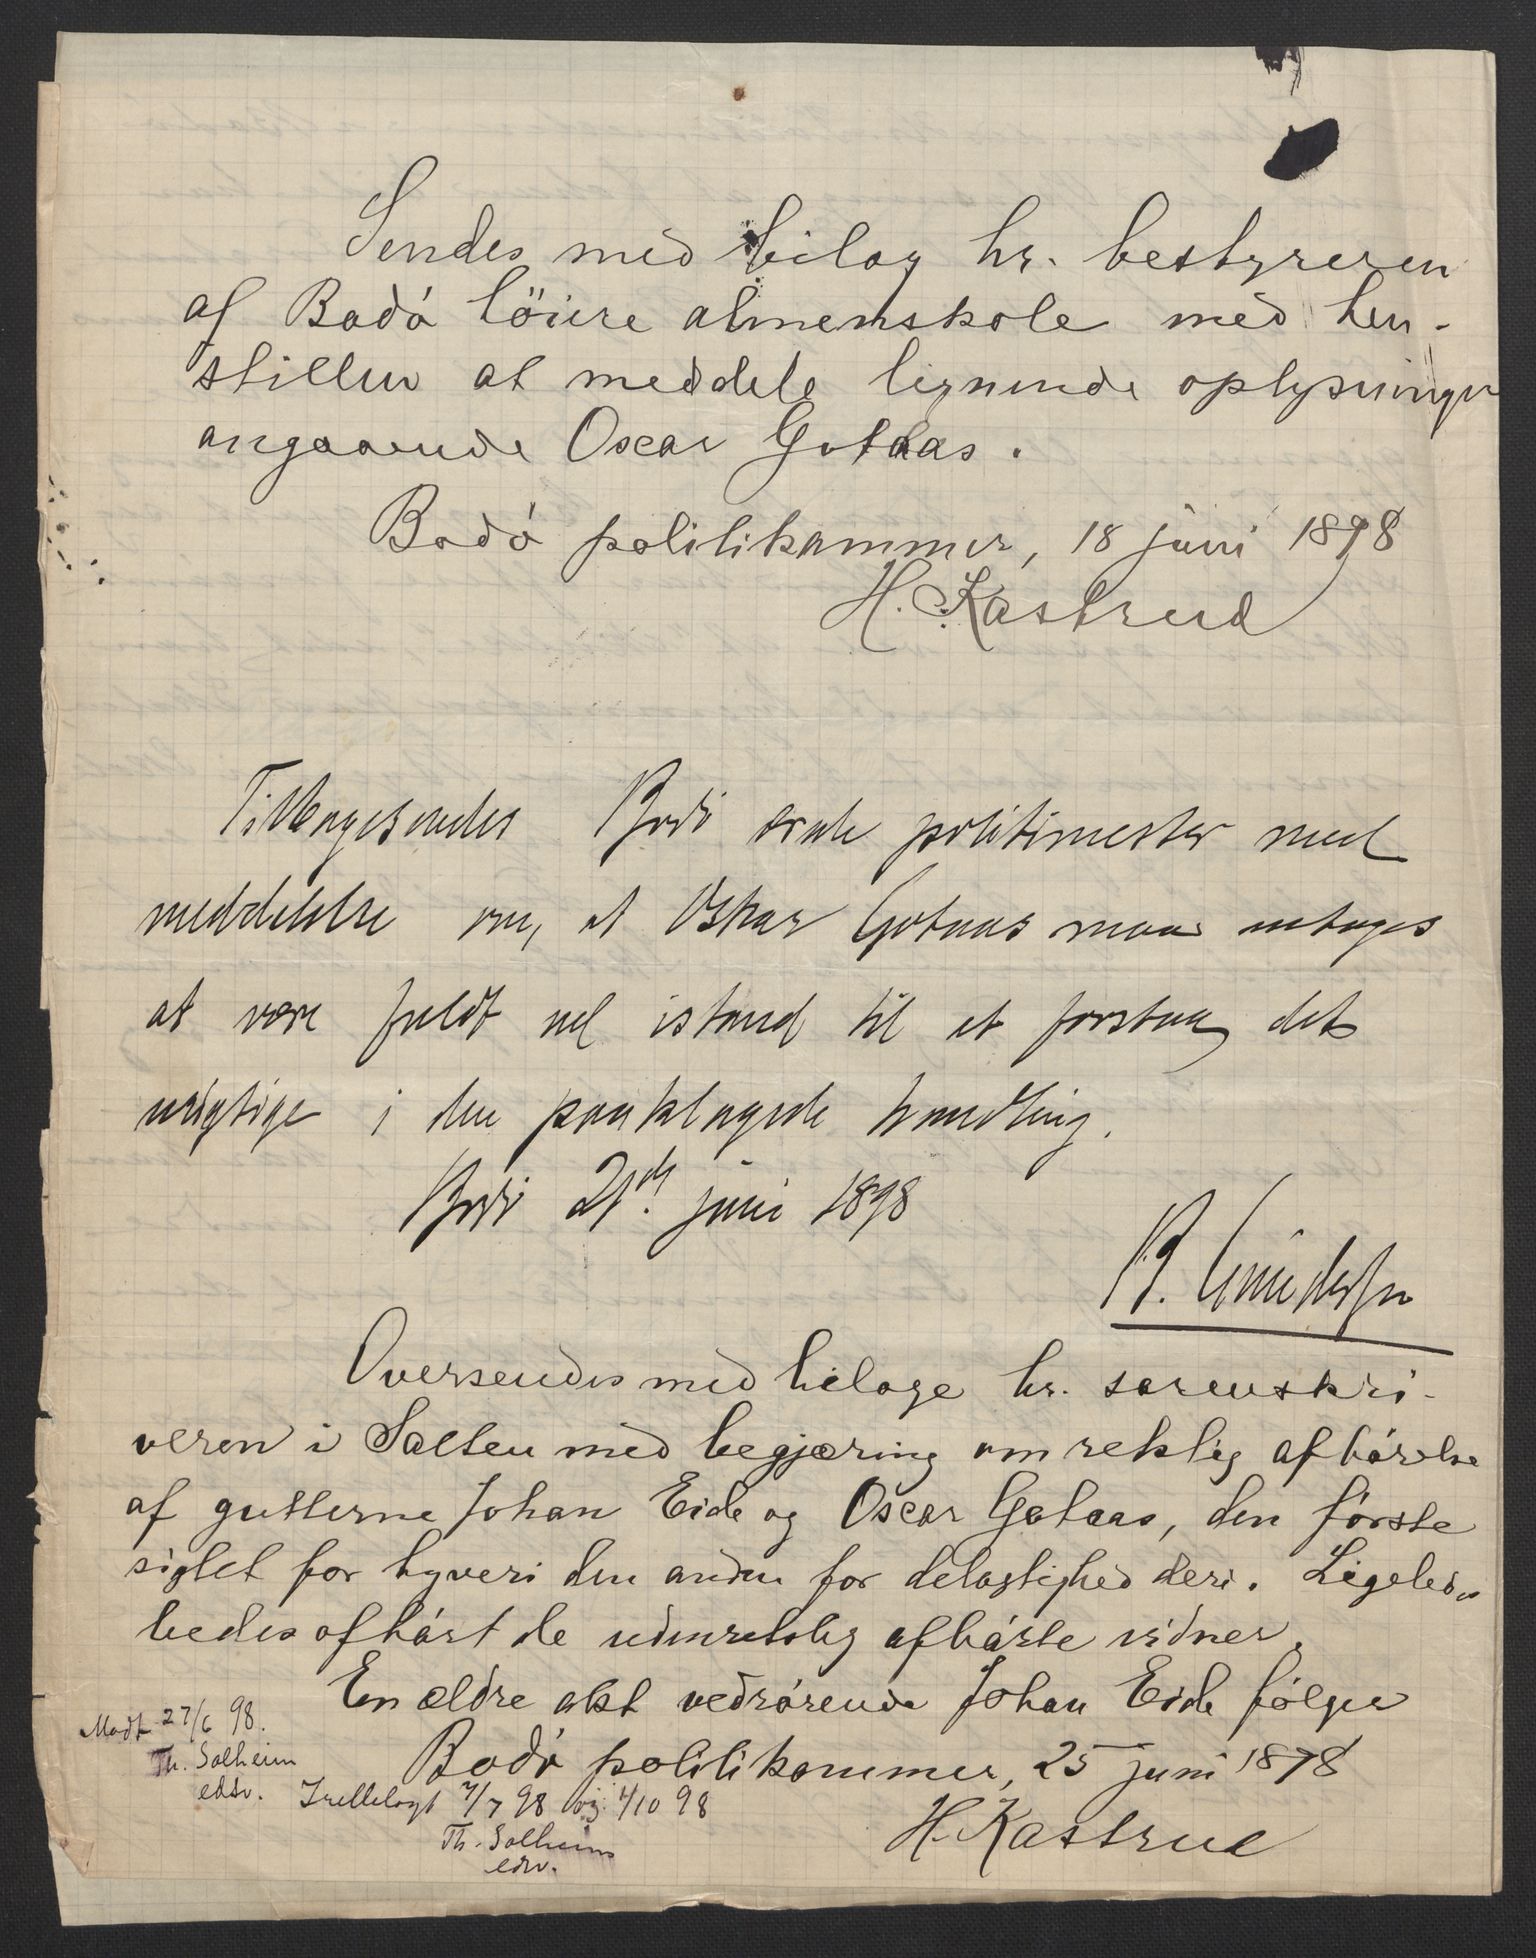 Sendes med bilag hr. bestyreren
af Bodó höiere almenskole med hen-
stillen at meddele lignende oplysninger
angaaende Oscar Gotaas.
Bodó politikammer, 18 juni 1898
H. Kastrud
Tilbagesendes Bodö ærede politimester med
meddelelse om, at Oskar Gotaas maa antages
at være fuldt vel istand til at forstaa det
urigtige i den paaklagede handling.
Bodö 21de juni 1898
Oversendes med bilage hr. sorenskri-
veren i Salten med begjæring om retslig afhórelse
af gutterne Johan Eide og Oscar Gotaas, den fórste
sigtet for tyveri den anden for delagtighed deri. Ligeledes
bedes afhórt de udenretslig afhórte vidner.
En ældre akt vedrórende Johan Eide fólger
Bodó politikammer, 25 juni 1898
H. Kastrud
Modt 27/6 98.
Th. Solheim
edsv.
Irettelagt 7/7 98 og 4/10 98
Th. Solheim
edsv.